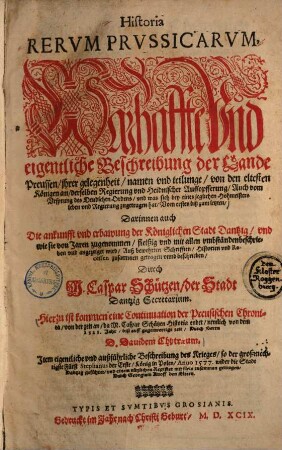 Historia
RERVM PRVSSICARVM,
Warhaffte Vnd
eigentliche Beschreibung der Lande
Preussen / ihrer gelegenheit / namen vnd teilunge / von den eltesten
Königen an / derselben Regierung vnd Heidnischer Auffopfferung / Auch vom
Vrsprung des Deudschen Ordens / vnd was sich bey eines jeglichen Hohmeisters
leben vnd Regierung zugetragen hat / Vom ersten biß zum letzten /
Darinnen auch
Die ankunfft vnd erbawung der Königlichen Stadt Dantzig / vnd
wie sie von Jaren zugenommen / fleissig vnd mit allen vmbständen beschrie-
ben vnd angezeigt wird / Auß bewehrten Schrifften / Historien vnd Re-
cessen zusammen getragen vnnd beschrieben /
Durch
M. Caspar Schützen / der Stadt
Dantzig Secretarium.
Hierzu ist kommen eine Continuation der Preussischen Chroni-
cken / von der zeit an / da M. Caspar Schützen Historia endet / nemlich von dem
1525. Jahr / biß auff gegenwertige zeit / Durch Herrn
D. Davidem Chytræum,
Item eigentliche vnd außführliche Beschreibung des Krieges / so der großmech-
tigste Fürst Stephanus der Erste / König in Polen / Anno 1577. wider die Stadt
Dantzig geführet /
Durch Georgium Knoff den Eltern.
TYPIS ET SVMTIBVS GROSIANIS.
Gedruckt im Jahr nach Christi Geburt / M. D. XCIX.
dem
Kloster
Roggen-
burg.